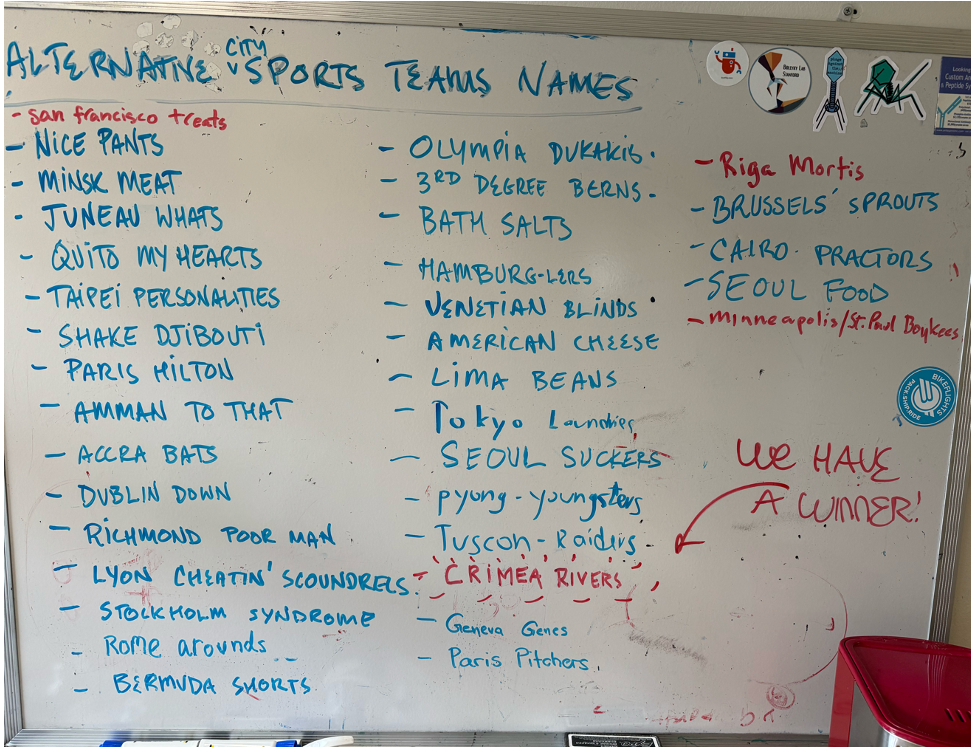 ALTERNATIVE CITY SPORTS TEAMS NAMES
- san francisco treats
- NICE PANTS
- MINSK MEAT
- JUNEAU WHATS
- QUITO MY HEARTS
- TAIPEI PERSONALITIES
- SHAKE DJIBOUTI
- PARIS HILTON
- AMMAN TO THAT
- ACCRA BATS
- DUBLIN DOWN
- RICHMOND POOR MAN
- LYON CHEATIN' SCOUNDRELS
- STOCKHOLM SYNDROME
- Rome arounds
- BERMUDA SHORTS
- OLYMPIA DUKAKIS.
- 3RD DEGREE BERNS.
- BATH SALTS
- HAMBURG-LERS
- VENETIAN BLINDS
- AMERICAN CHEESE
- LIMA BEANS
- Tokyo Laundries
- SEOUL SUCKERS
- pyong-youngsters
- Tuscon-Raiders
- CRIMEA RIVERS
- Geneva Genes
- Paris Pitchers
- Riga Mortis
- BRUSSELS' SPROUTS
- CAIRO-PRACTORS
- SEOUL FOOD
- Minneapolis/St. Paul Boykees
WE HAVE
A WINNER!
BIKEFLIGHTS
PACK.SHIP.RIDE